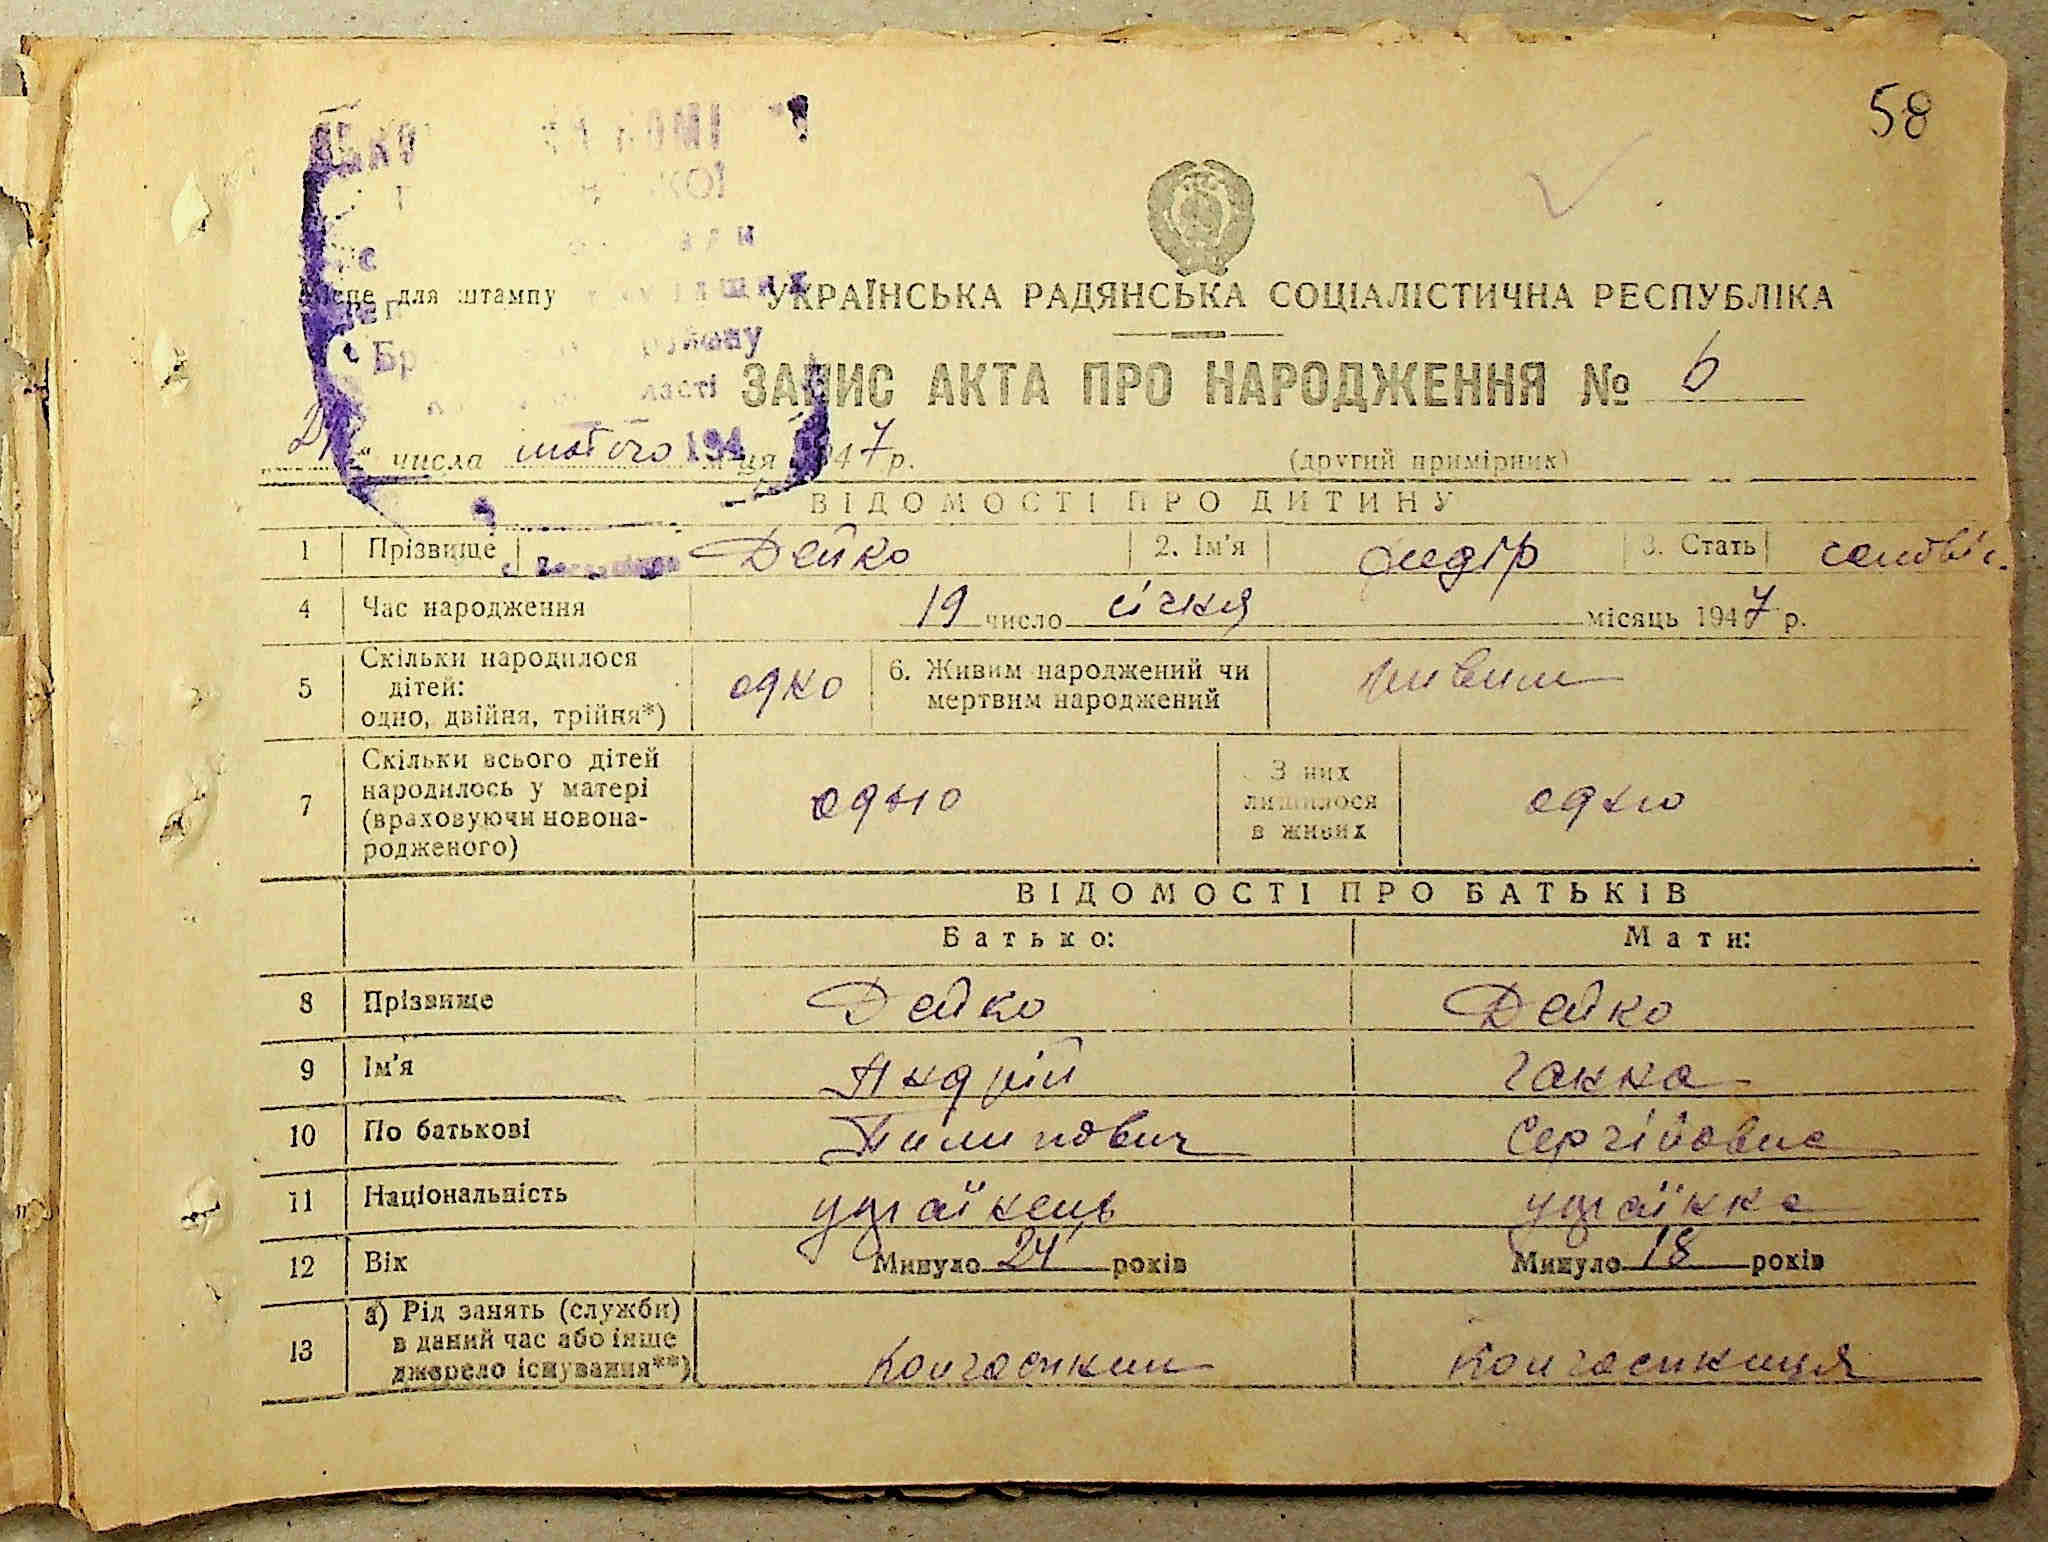 58
Місце для штампу
УКРАЇНСЬКА РАДЯНСЬКА СОЦІАЛІСТИЧНА РЕСПУБЛІКА
району
ЗАПИС АКТА ПРО НАРОДЖЕННЯ № 6
числа лютого м-ця 1947 р.
(другий примірник)
ВІДОМОСТІ ПРО ДИТИНУ
1 Прізвище Дейко 2. Ім'я Федір 3. Стать чоловіч.
4 Час народження 19 число січня місяць 1947 р.
5 Скільки народилося дітей: одно, двійня, трійня*) одно 6. Живим народжений чи мертвим народжений живим
7 Скільки всього дітей народилось у матері (враховуючи новонародженого) одно З них лишилося в живих одно
ВІДОМОСТІ ПРО БАТЬКІВ
Батько: Мати:
8 Прізвище Дейко Дейко
9 Ім'я Андрій Ганна
10 По батькові Пилипович Сергійовна
11 Національність українець українка
12 Вік Минуло 24 років Минуло 18 років
13 а) Рід занять (служби) в даний час або інше джерело існування**) Колгоспник Колгоспниця